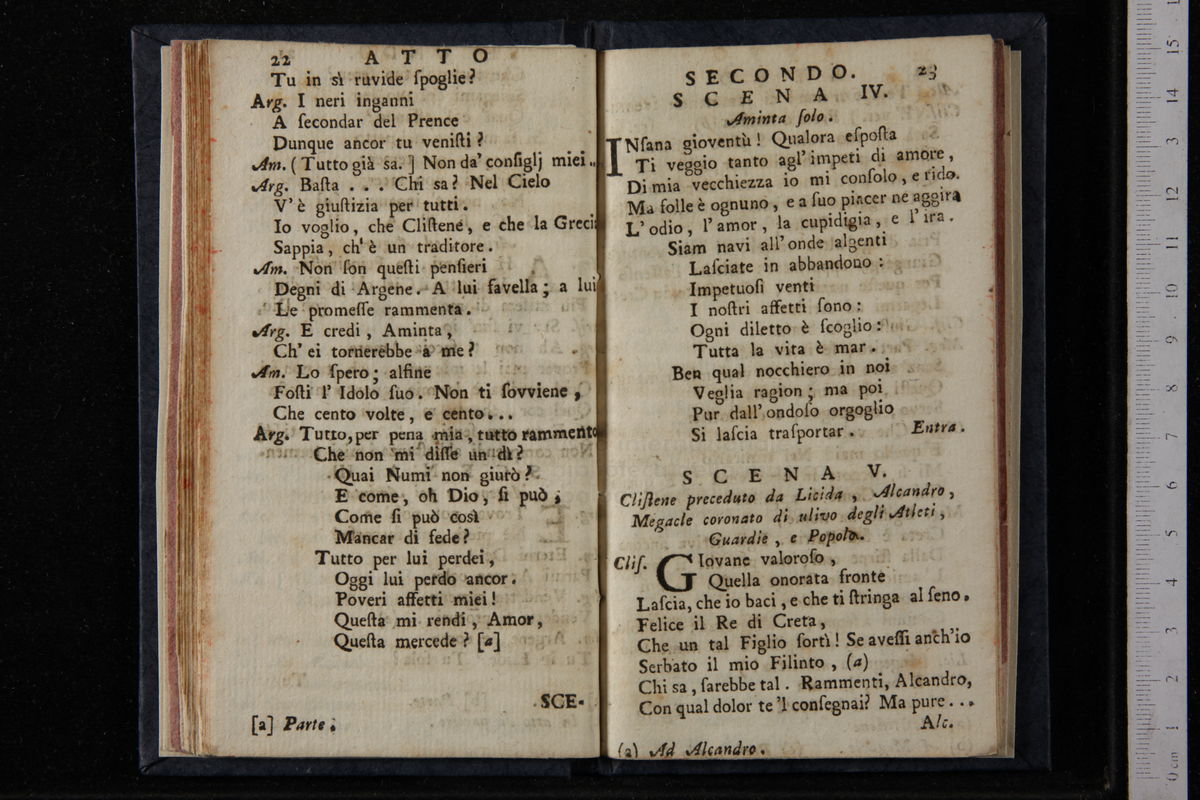 22 ATTO
Tu in sì ruvide ſpoglie?
Arg. I neri inganni
A ſecondar del Prence
Dunque ancor tu veniſti?
Am. ( Tutto già sa. ] Non da' conſiglj miei..
Arg. Baſta . . . Chi sa? Nel Cielo
V' è giuſtizia per tutti.
Io voglio, che Cliſtene, e che la Greci
Sappia, ch' è un traditore.
Am. Non ſon queſti penſieri
Degni di Argene. A lui favella; a lui
Le promeſſe rammenta.
Arg. E credi, Aminta,
Ch' ei tornerebbe a me?
Am. Lo ſpero; alfine
Foſti l' Idolo ſuo. Non ti ſovviene,
Che cento volte, e cento...
Arg. Tutto, per pena mia, tutto rammento
Che non mi diſſe un dì?
Quai Numi non giurò?
E come, oh Dio, ſi può,
Come ſi può così
Mancar di fede?
Tutto per lui perdei,
Oggi lui perdo ancor.
Poveri affetti miei!
Queſta mi rendi, Amor,
Queſta mercede? [a]
SCE-
[a] Parte.
SECONDO. 23
SCENA IV.
Aminta ſolo.
INſana gioventù! Qualora eſpoſta
Ti veggio tanto agl' impeti di amore,
Di mia vecchiezza io mi conſolo, e rido.
Ma folle è ognuno, e a ſuo piacer ne aggira
L' odio, l' amor, la cupidigia, e l' ira.
Siam navi all' onde algenti
Laſciate in abbandono:
Impetuoſi venti
I noſtri affetti ſono:
Ogni diletto è ſcoglio:
Tutta la vita è mar.
Ben qual nocchiero in noi
Veglia ragion; ma poi
Pur dall' ondoſo orgoglio
Si laſcia traſportar. Entra.
SCENA V.
Cliſtene preceduto da Licida, Alcandro,
Megacle coronato di ulivo degli Atleti,
Guardie, e Popolo.
Cliſ. GIovane valoroſo,
Quella onorata fronte
Laſcia, che io baci, e che ti ſtringa al ſeno.
Felice il Re di Creta,
Che un tal Figlio ſortì! Se aveſſi anch'io
Serbato il mio Filinto, (a)
Chi sa, ſarebbe tal. Rammenti, Alcandro,
Con qual dolor te 'l conſegnai? Ma pure...
Alc.
(a) Ad Alcandro.
0 cm 1 2 3 4 5 6 7 8 9 10 11 12 3 14 15